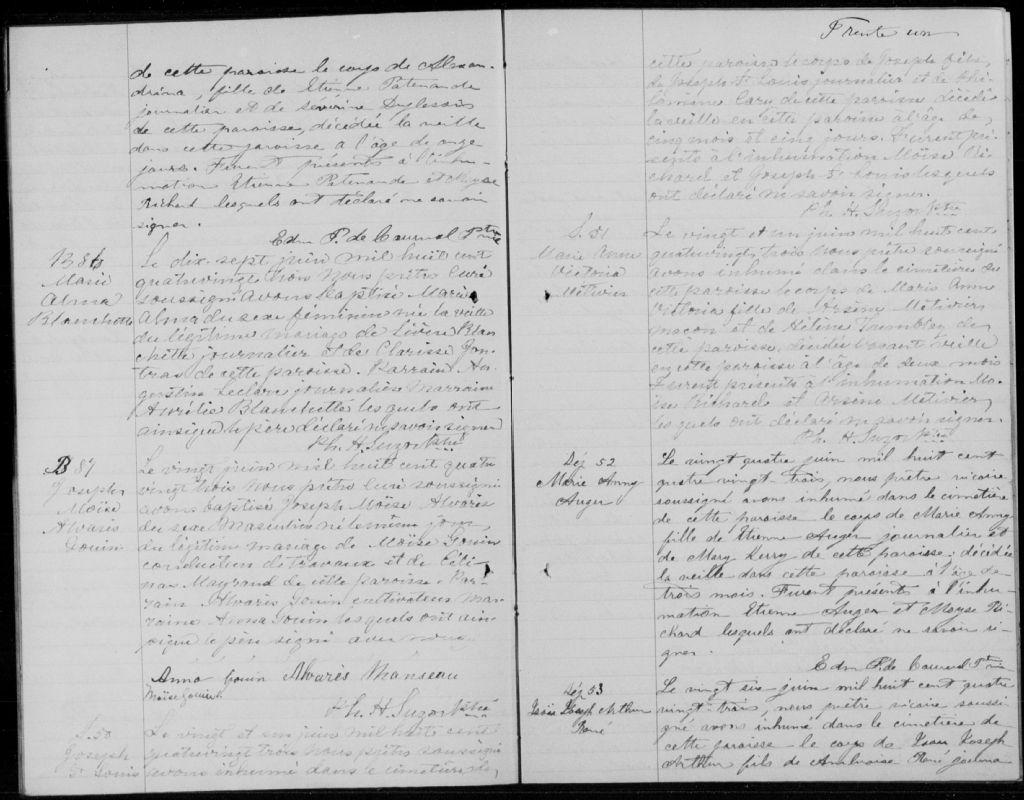 de cette paroisse le corps de Alexan-
drina, fille de Etienne Patenaude
journalier et de Séverine
de cette paroisse, décédée la veille
dans cette paroisse à l'âge de onze
jours. Furent présents à l'inhu-
mation Etienne Patenaude et Moyse
Richard lesquels ont déclaré ne savoir
signer.
Edm P. de Courval Ptre
B 86
Marie
Alma
Blanchette
Le dix-sept juin mil huit cent
quatrevingt trois nous prêtre curé
soussigné avons baptisé Marie
Alma du sexe féminin née la veille
du légitime mariage de Blan
chette journalier et de Clarisse
tras de cette paroisse. Parrain Au
gustin Leclerc journalier Marraine
Aurélie Blanchette lesquels ont
ainsique le père déclaré ne savoir signer
Ph. H. Suzor Ptre
B 87
Joseph
Moïse
Alvarès
Gouin
Le vingt juin mil huit cent quatre
vingt trois nous prêtre curé soussigné
avons baptisé Joseph Moïse Alvarès
du sexe masculin né le même jour
du légitime mariage de Moïse Gouin
conducteur de travaux et de Céli-
na Mayrand de cette paroisse. Par-
rain Alvarès cultivateur Mar
raine Anna Gouin lesquels ont ain
sique le père signé avec nous.
Anna Gouin Alvarès Manseau
Moïse Gouin
Ph. H. Suzor Ptre
S. 50
Joseph
St Louis
Le vingt et un juin mil huit cent
quatrevingt trois nous prêtre soussigné
avons inhumé dans le cimetière de
Trente un
cette paroisse le corps de Joseph fils
de Joseph St Louis journalier et de Phi
lomène de cette paroisse décédé
la veille en cette paroisse à l'âge de
cinq mois et cinq jours. Furent pré
sents à l'inhumation Moïse Ri
chard et Joseph St Louis lesquels
ont déclaré ne savoir signer.
Ph. H. Suzor Ptre
S. 51
Marie Anne
Victoria
Métivier
Le vingt et un juin mil huit cent
quatrevingt trois nous prêtre soussigné
avons inhumé dans le cimetière de
cette paroisse le corps de Marie Anne
Victoria fille de Arsène Métivier
maçon et de Hélène Tremblay de
cette paroisse, décédée l'avant veille
en cette paroisse à l'âge de deux mois
Furent présents à l'inhumation Mo
ise Richard et Arsène Métivier
lesquels ont déclaré ne savoir signer.
Ph. H. Suzor Ptre
Sép 52
Marie Anny
Auger
Le vingt quatre juin mil huit cent
quatre vingt-trois, nous prêtre vicaire
soussigné avons inhumé dans le cimetière
de cette paroisse le corps de Marie Anny
fille de Etienne Auger journalier et
de Mary Kerry de cette paroisse, décédée
la veille dans cette paroisse à l'âge de
trois mois. Furent présents à l'inhu-
mation Etienne Auger et Moyse Ri-
chard lesquels ont déclaré ne savoir si-
gner.
Edm P. de Courval Ptre
Sép 53
Joseph Arthur
René
Le vingt six juin mil huit cent quatre
vingt-trois, nous prêtre vicaire soussi-
gné avons inhumé dans le cimetière de
cette paroisse le corps de Joseph
Arthur fils de Ambroise René journa